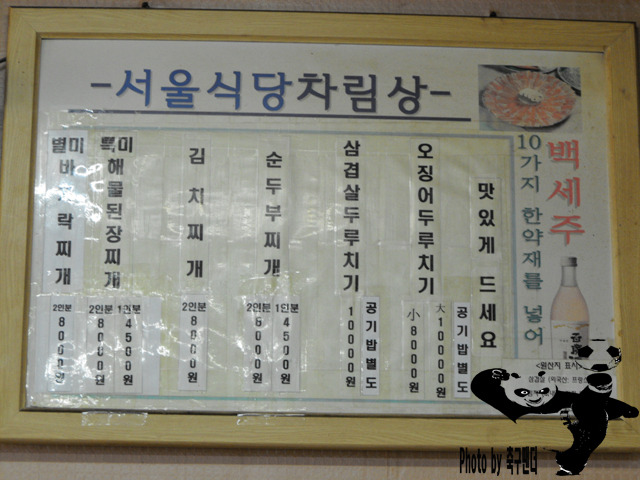 -서울식당차림상-
별미
바지락찌개
2인분 8000원
특미
해물된장찌개
2인분 8000원
1인분 4500원
김치찌개
2인분 8000원
순두부찌개
2인분 8000원
1인분 4500원
삼겹살두루치기
10000원
공기밥별도
오징어두루치기
小 8000원
大 10000원
공기밥별도
맛있게 드세요
10가지 한약재를 넣어
백세주
<원산지 표시>
삼겹살 (외국산:
Photo by 축구팬더